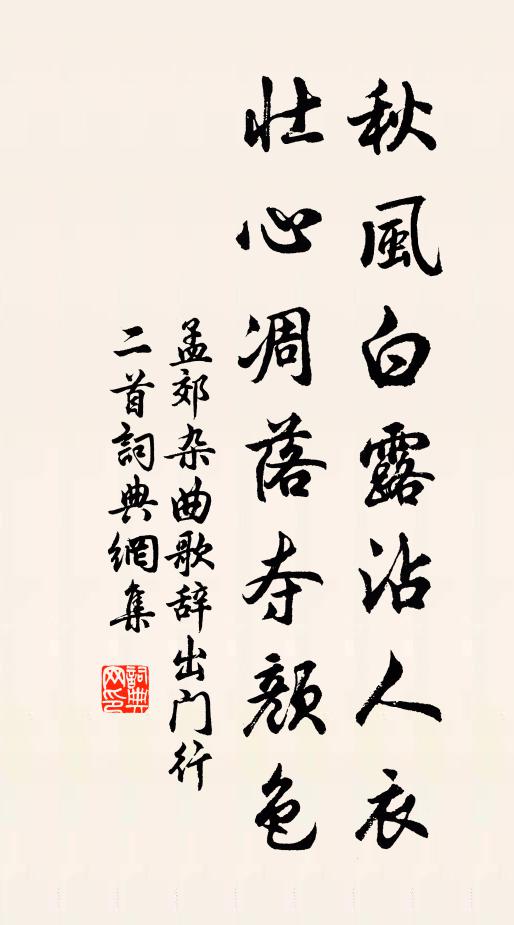 秋風白露沾人衣
壯心凋落夺顏色
孟郊杂曲歌辞出门行
二首詞典網集
詞典网印